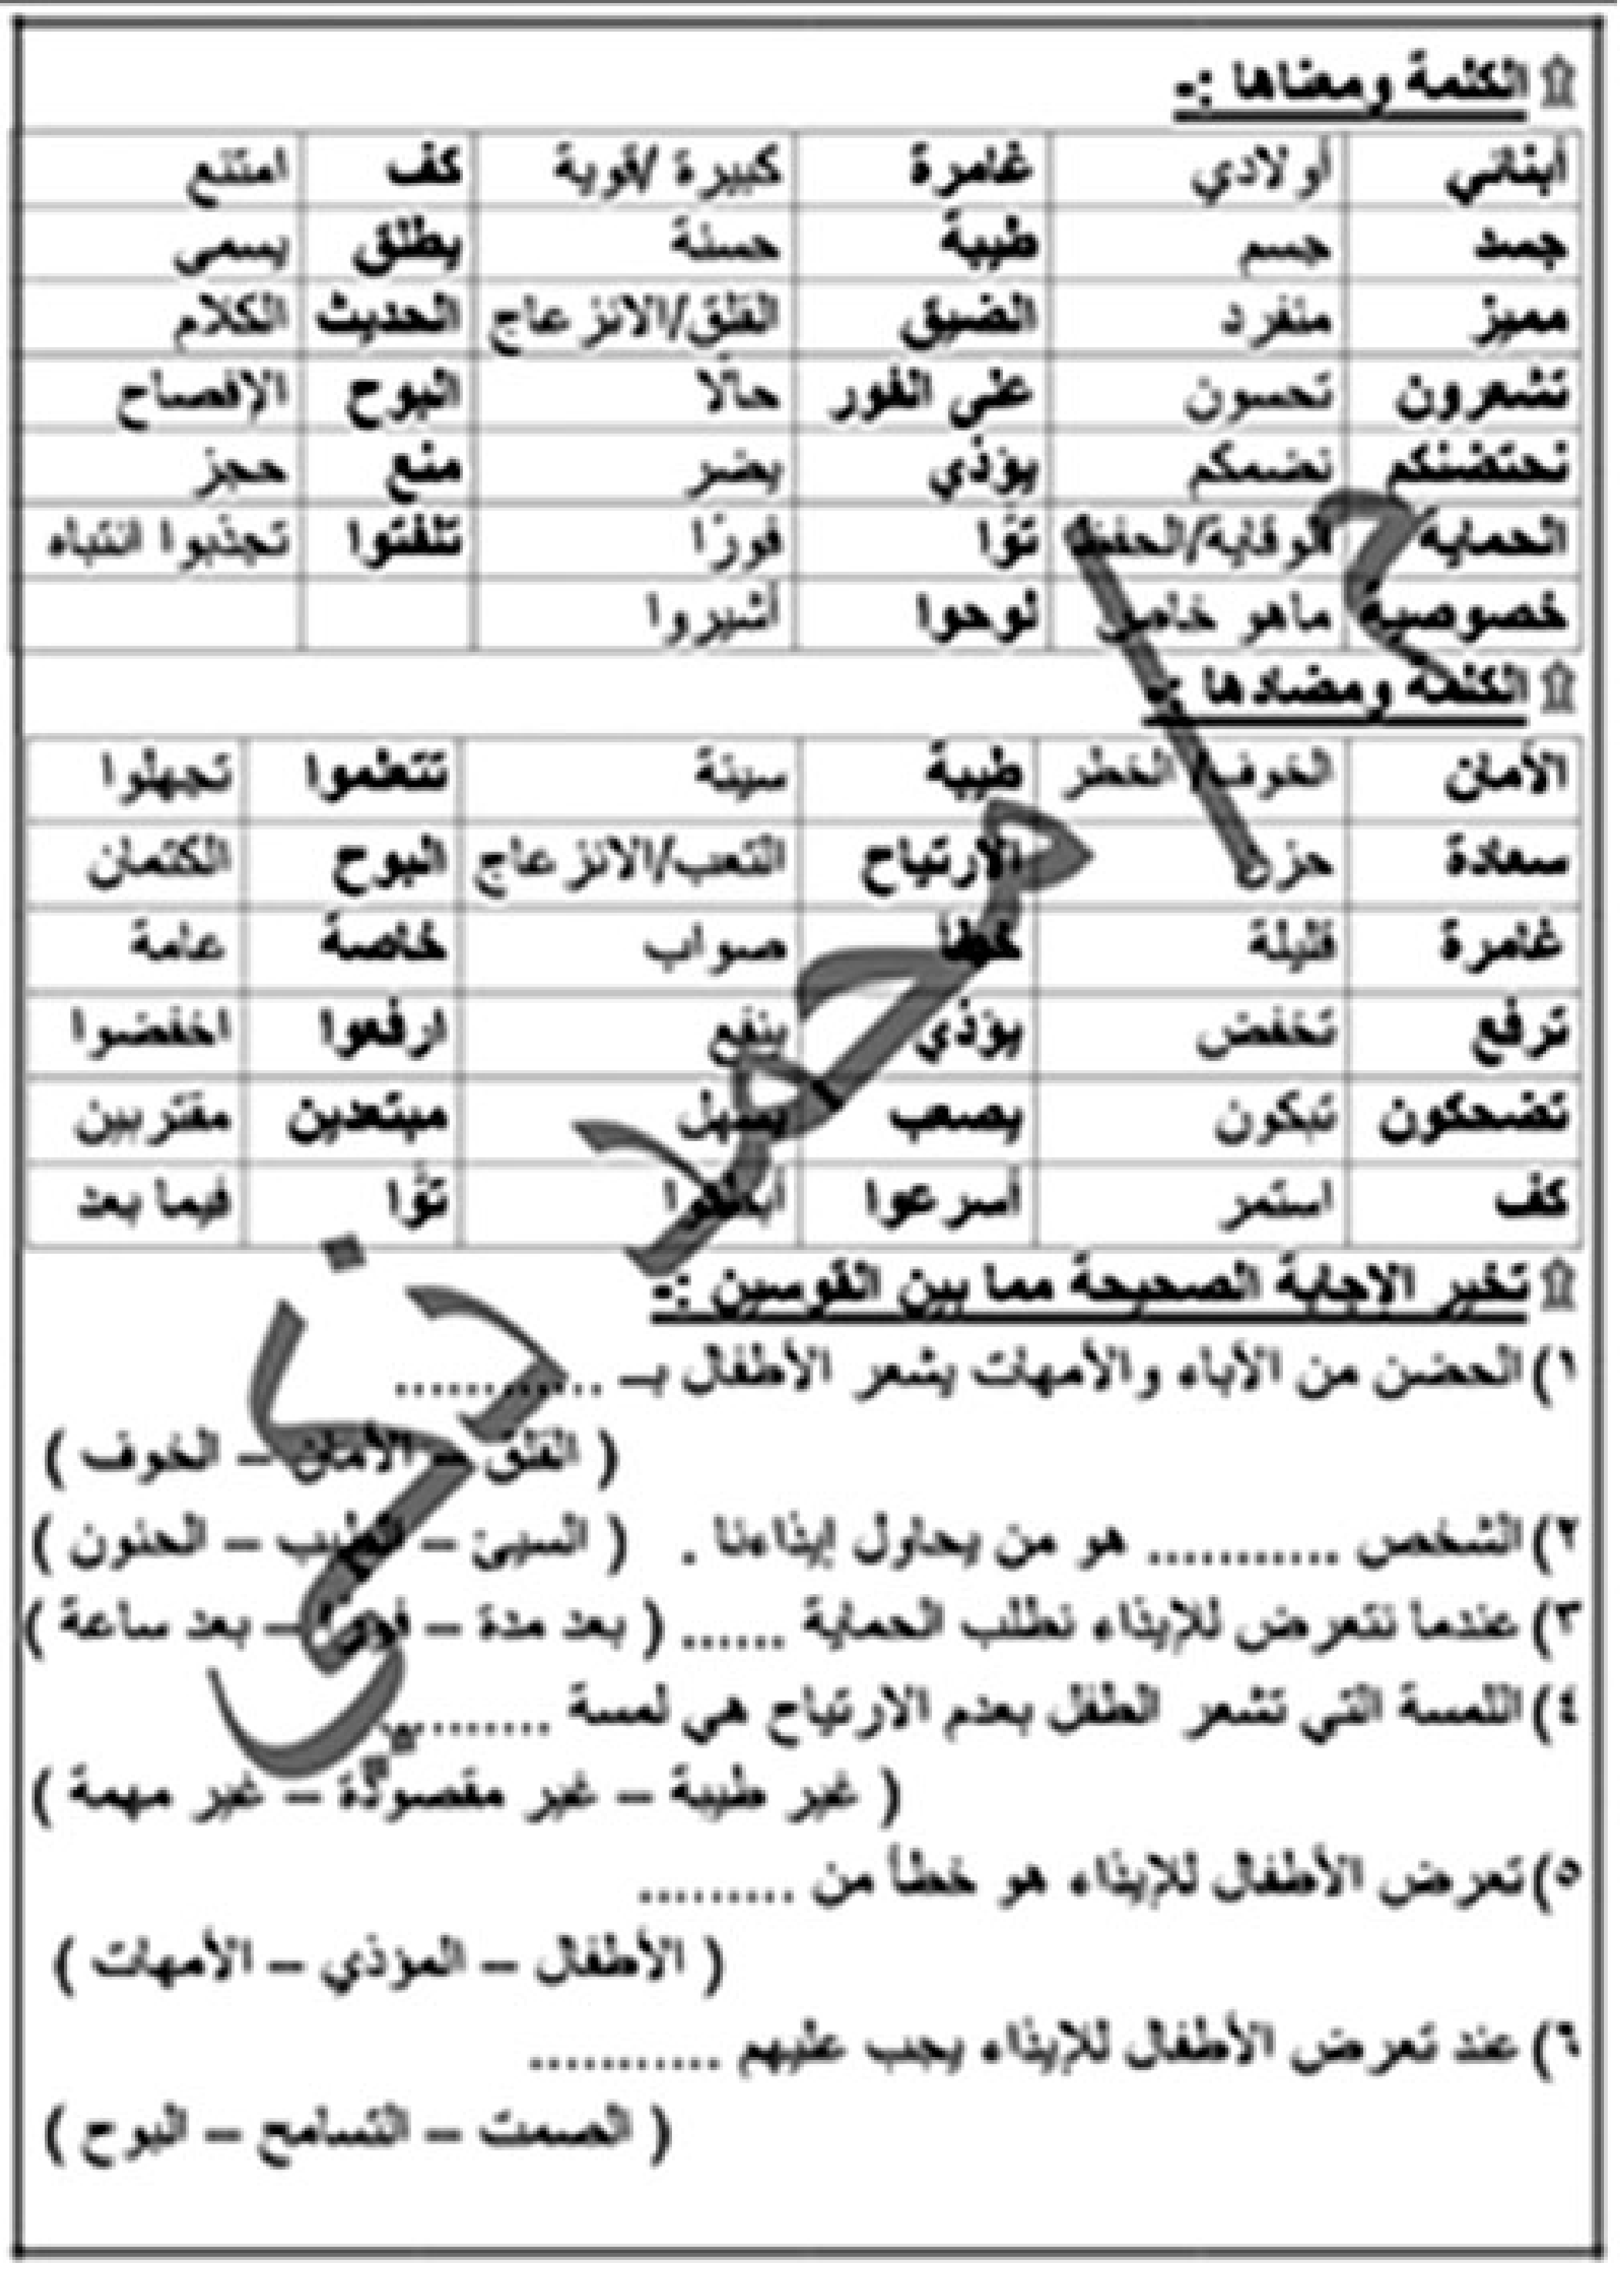 الكلمة ومعناها :-
أبنائي أولادي غامرة كبيرة /قوية كف امتنع
جسد جسم طيبة حسنة يطلق يسمى
مميز منفرد الضيق القلق/الانزعاج الحديث الكلام
تشعرون تحسون على الفور حالًا البوح الإفصاح
نحتضنكم نضمكم يؤذي يضر منع حجز
الحماية الوقاية/الحفظ توًا فورًا تلفتوا تجذبوا انتباه
خصوصية ماهو خاص لوحوا أشيروا
الكلمة ومضادها :-
الأمان الخوف/ الخطر طيبة سيئة تتعلموا تجهلوا
سعادة حزن الارتياح التعب/الانزعاج البوح الكتمان
غامرة قليلة خطأ صواب خاصة عامة
ترفع تخفض يؤذي ينفع ارفعوا اخفضوا
تضحكون تبكون يصعب يسهل مبتعدين مقتربين
كف استمر أسرعوا أبطئوا توًا فيما بعد
تخير الاجابة الصحيحة مما بين القوسين :-
١) الحضن من الآباء والأمهات يشعر الأطفال بـ ............
( القلق – الأمان – الخوف )
٢) الشخص ........... هو من يحاول إيذاءنا . ( السيئ – الطيب – الحنون )
٣) عندما نتعرض للإيذاء نطلب الحماية ...... ( بعد مدة – فورًا – بعد ساعة )
٤) اللمسة التي تشعر الطفل بعدم الارتياح هي لمسة .........
( غير طيبة – غير مقصودة – غير مهمة )
٥) تعرض الأطفال للإيذاء هو خطأ من .........
( الأطفال – المؤذي – الأمهات )
٦) عند تعرض الأطفال للإيذاء يجب عليهم ...........
( الصمت – التسامح – البوح )